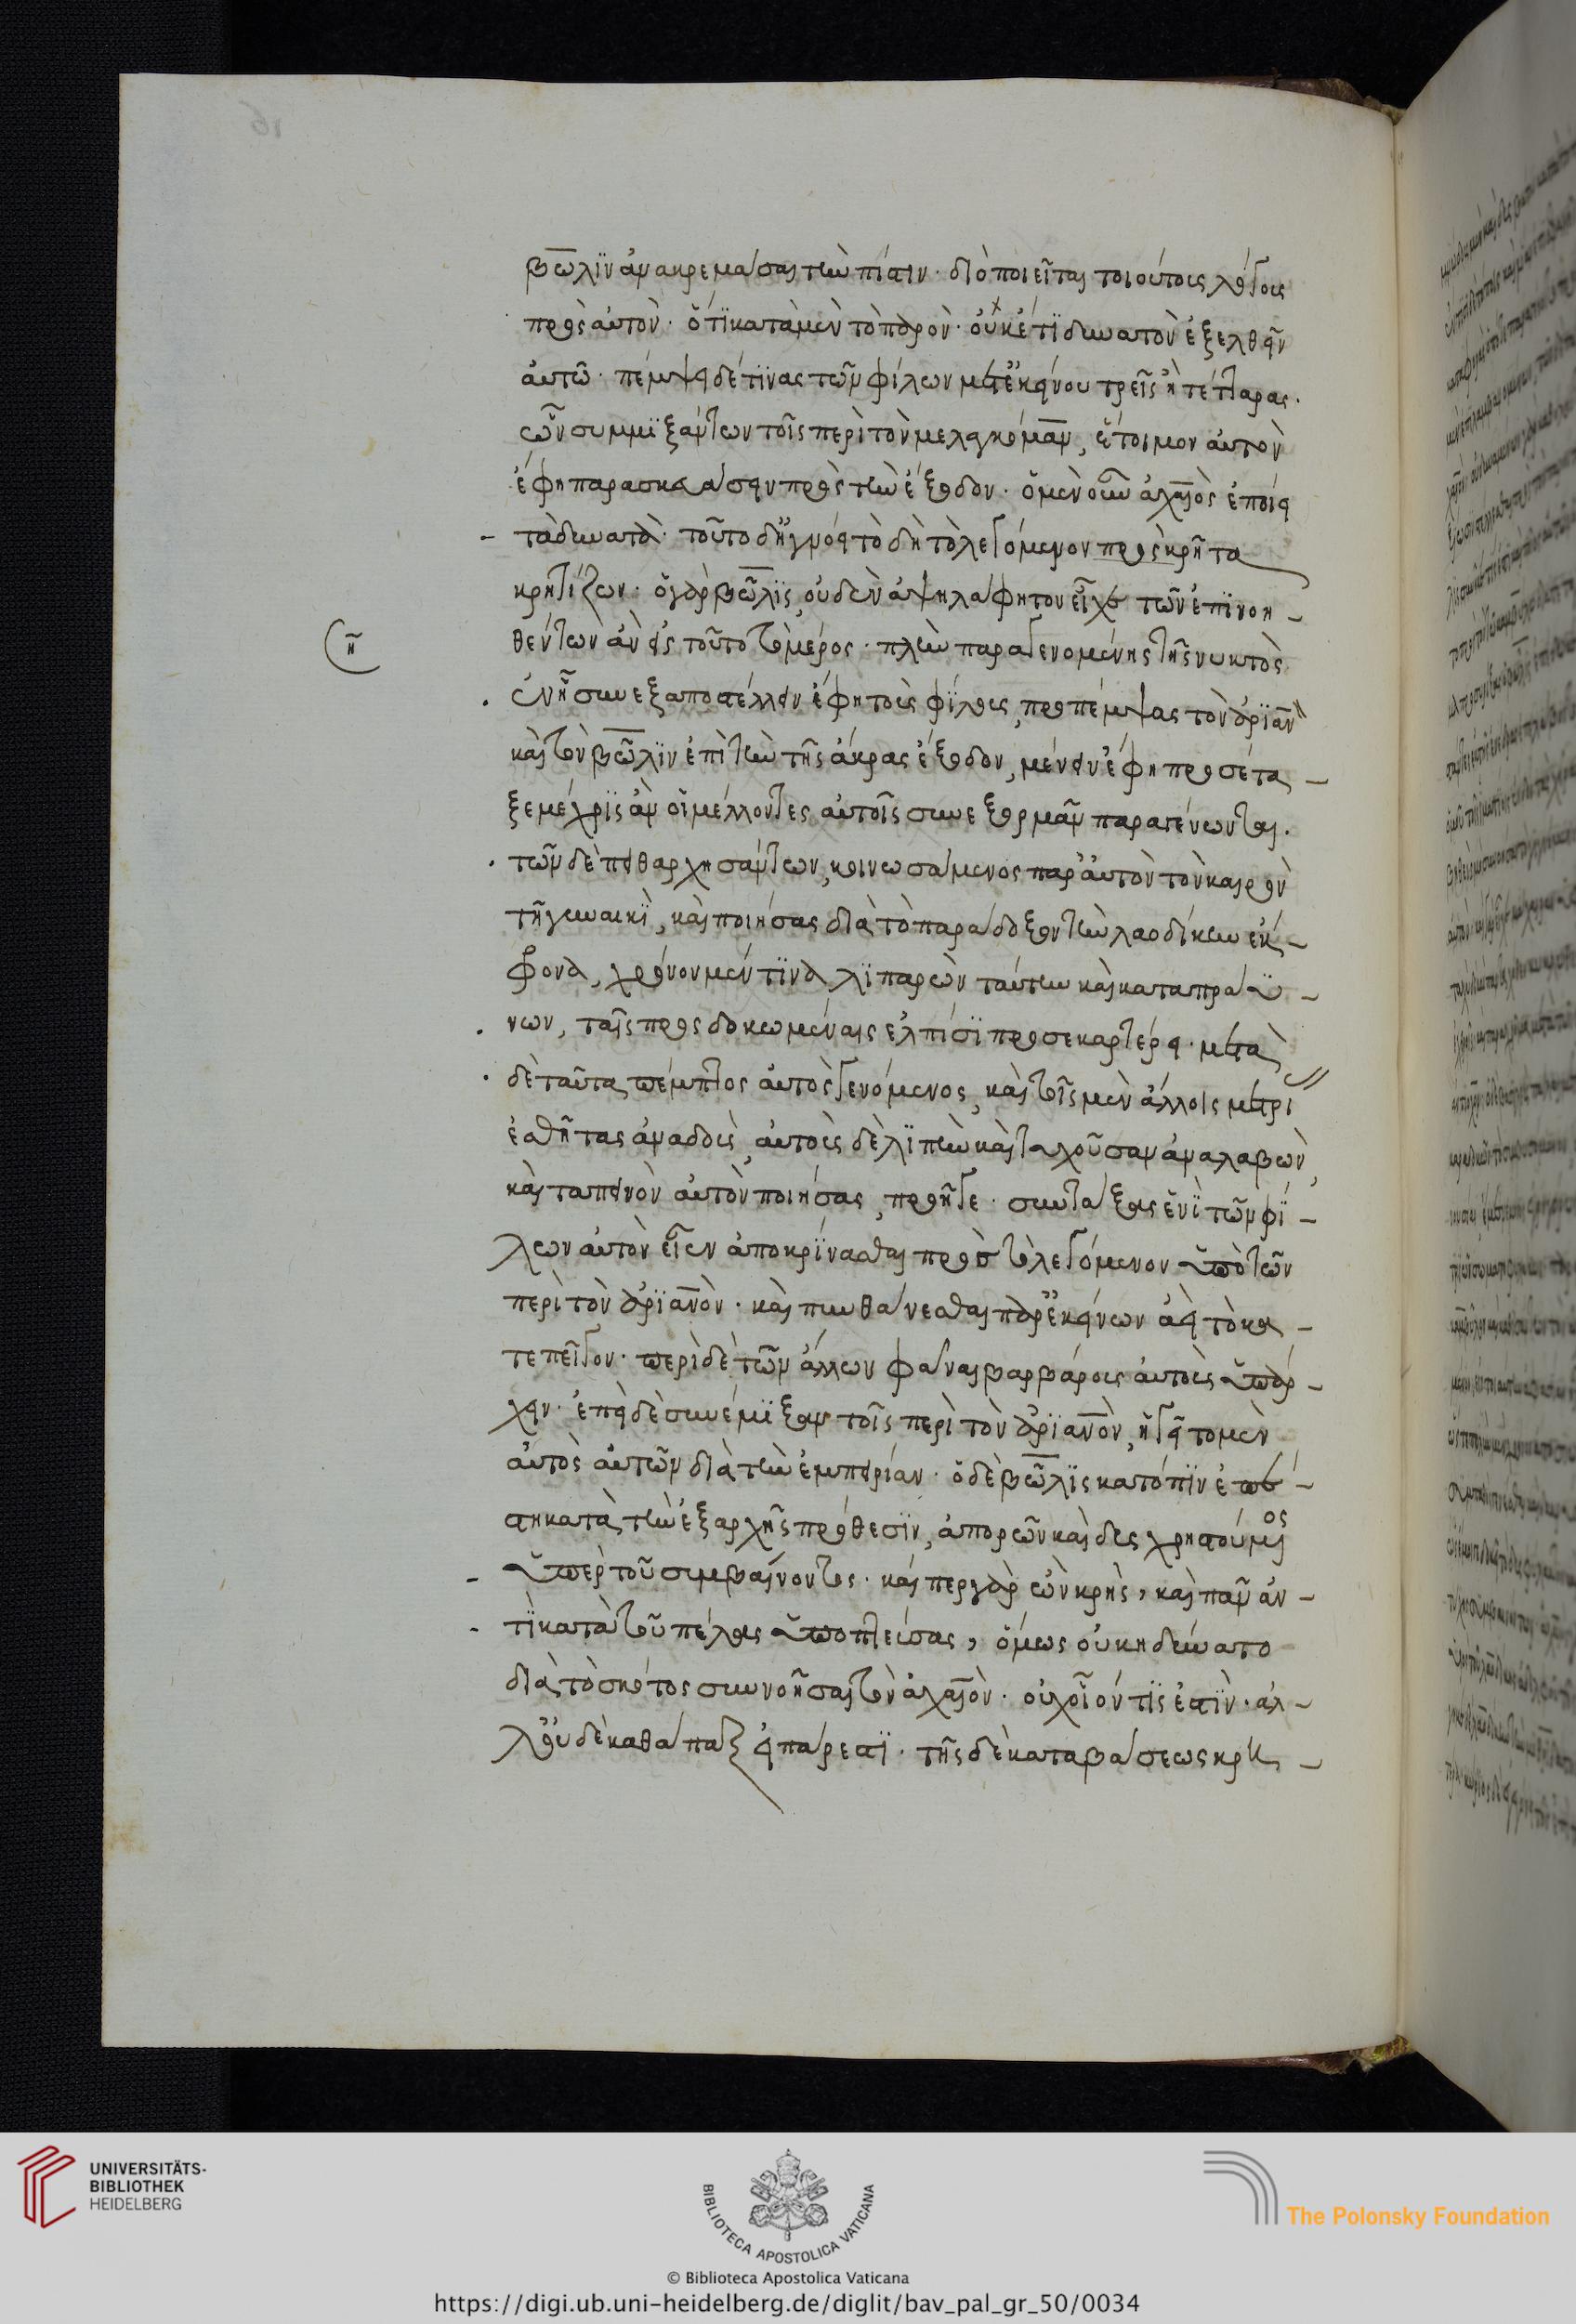 βῶλϊν ἀνακρεμάσαι τὴν πίστιν· διὸ ποιεῖται τοιούτους λόγους
πρὸς αὐτὸν· ὅτϊ κατὰ μὲν τὸ παρὸν· οὐκ ἔτϊ δυνατὸν ἐξελθεῖν
ἀυτῶ· πέμψει δέ τϊνας τῶν φίλων μετ' ἐκείνου τρεῖς ἢ τέτταρας·
ὧν συμμϊξάντων τοῖς περὶ τὸν μελαγκόμαν, ἕτοιμον αὐτὸν
ἔφη παρασκευάσειν πρὸς τὴν ἔξοδον· ὁ μὲν οὖν ἀχαιὸς ἐποίει
τὰ δυνατὰ· τοῦτο δ' ἠγνόει τὸ δὴ τὸ λεγόμενον πρὸς κρῆτα
κρητίζων· ὁ γὰρ βῶλϊς, οὐδὲν ἀψηλάφητον εἶχε τῶν ἐπϊνοη
θέντων ἀν εἰς τοῦτο τὸ μέρος· πλὴν παραγενομένης τῆς νυκτὸς
η
ἐν ἧ συνεξαποστέλλειν ἔφη τοὺς φίλους, προπέμψας τὸν ἀρϊανὸν
καὶ τὸν βῶλϊν ἐπὶ τὴν τῆς ἄκρας ἔξοδον, μένειν ἔφη προσέτα
ξε μέχρϊς ἂν οἱ μέλλοντες αὐτοῖς συνεξορμᾶν παραγένωνται·
τῶν δὲ πειθαρχησάντων, κοινωσάμενος παρ' ἀυτὸν τὸν καιρὸν
τῆ γυναικὶ, καὶ ποιήσας διὰ τὸ παράδοξον τὴν λαοδίκην ἔκ
φρονα, χρόνον μέν τϊνα λϊπαρῶν ταύτην καὶ καταπραΰ
νων, ταῖς προσδοκωμέναις ἐλπίσϊ προσεκαρτέρει· μετὰ
δὲ ταῦτα πέμπτος ἀυτὸς γενόμενος, καὶ τοῖς μὲν ἄλλοις μετρί
ἐσθῆτας ἀναδοὺς, ἀυτοὺς δὲ λϊτὴν καὶ τυχοῦσαν ἀναλαβὼν,
καὶ ταπεινὸν ἀυτὸν ποιήσας, προῆγε· συντάξας ἑνὶ τῶν φί
λων αὐτὸν εἶεν ἀποκρίνασθαι πρὸς τὸ λεγόμενον ὑπὸ τῶν
περὶ τὸν ἀρϊανὸν· καὶ πυνθάνεσθαι παρ' ἐκείνων ἀεὶ τὸ κα
τεπεῖγον· περὶ δὲ τῶν ἄλλων φάναι βαρβάρους ἀυτοὺς ὑπάρ
χειν· ἐπεὶ δὲ συνέμϊξαν τοῖς περὶ τὸν ἀρϊανὸν, ἡγεῖτο μὲν
ἀυτὸς ἀυτῶν διὰ τὴν ἐμπειρίαν· ὁ δὲ βῶλϊς κατόπϊν ἐπέ
στη κατὰ τὴν ἐξαρχῆς πρόθεσϊν, ἀπορῶν καὶ δυσχρηστούμενος
ὑπὲρ τοῦ συμβαίνοντος· καίπερ γὰρ ὢν κρὴς, καὶ πᾶν ἄν
τϊ κατὰ τοῦ πέλας ὑποπτεύσας, ὅμως οὐκ ἠδύνατο
διὰ τὸ σκότος συννοῆσαι τὸν ἀχαιὸν· οὐχ οἷον τίς ἐστϊν· ἀλ
λ' οὐδὲ καθάπαξ εἰ πάρεστϊ· τῆς δὲ καταβάσεως κρη
UNIVERSITÄTS-
BIBLIOTHEK
HEIDELBERG
BIBLIOTECA APOSTOLICA VATICANA
The Polonsky Foundation
© Biblioteca Apostolica Vaticana
https://digi.ub.uni-heidelberg.de/diglit/bav_pal_gr_50/0034